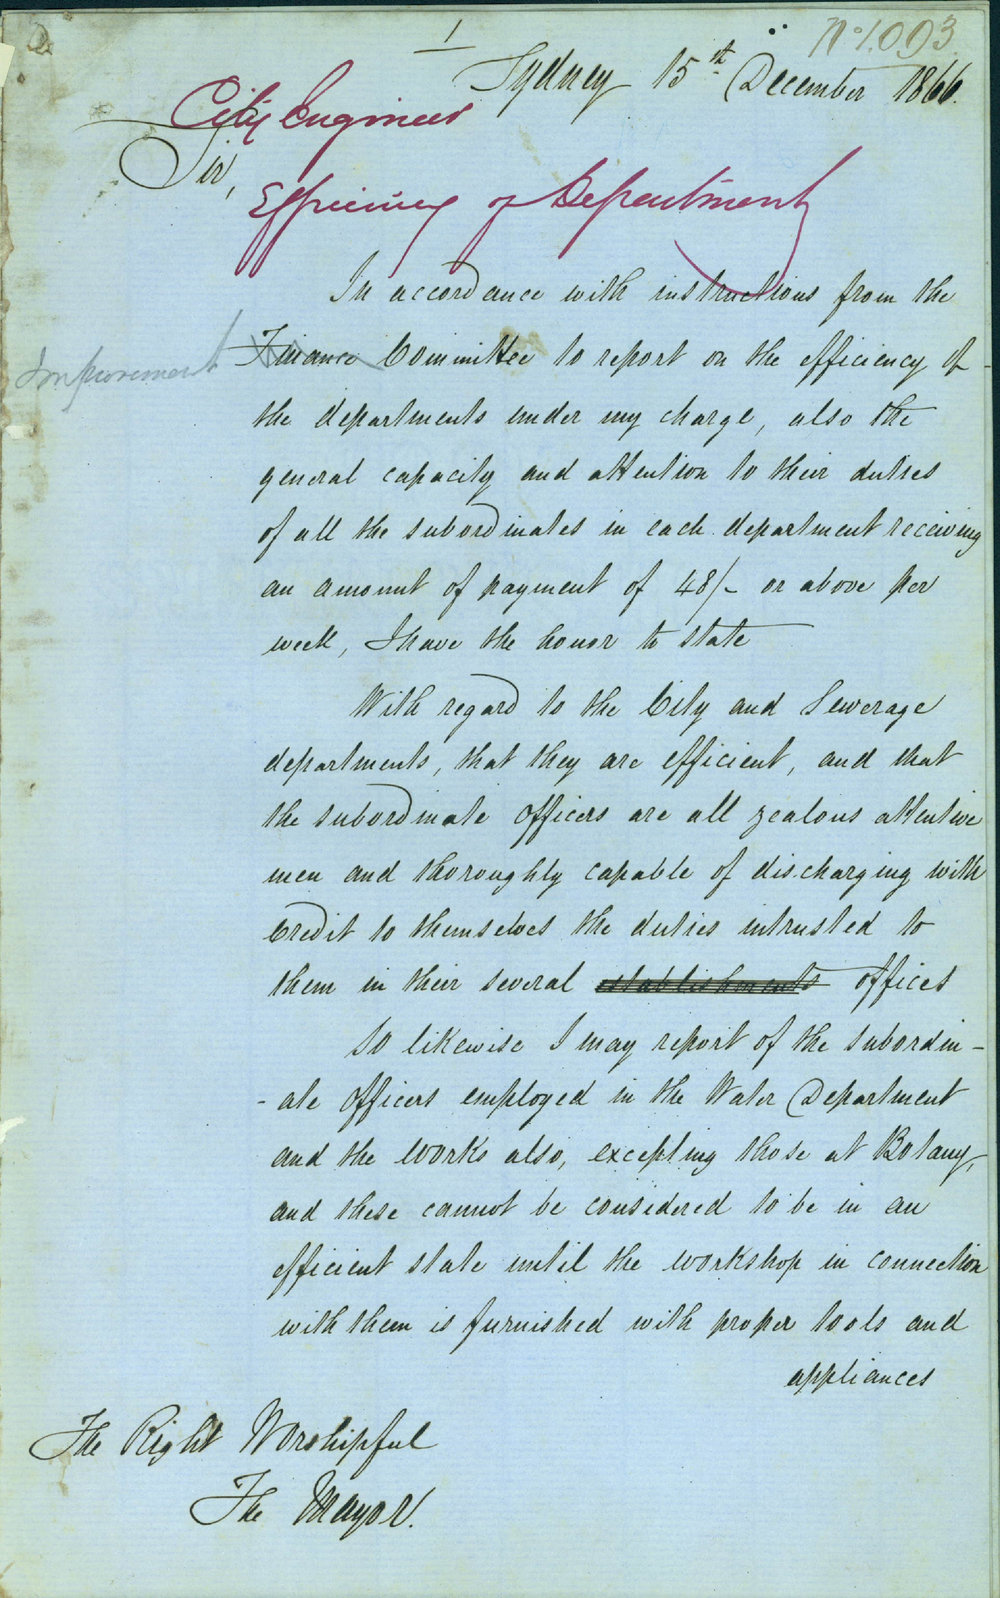 1
No 1.093
Sydney 15th December 1866.
City Engineer
Sir,
Efficiency of Department
In accordance with instructions from the
Improvement
Finance Committee to report on the efficiency of
the departments under my charge, also the
general capacity and attention to their duties
of all the subordinates in each department receiving
an amount of payment of 48/- or above per
week, I have the honor to state
With regard to the City and Sewerage
departments, that they are efficient, and that
the subordinate officers are all zealous attentive
men and thoroughly capable of discharging with
credit to themselves the duties intrusted to
them in their several establishments offices
So likewise I may report of the subordin-
-ate officers employed in the Water Department
and the works also, excepting those at Botany,
and these cannot be considered to be in an
efficient state until the workshop in connection
with them is furnished with proper tools and
appliances
The Right Worshipful
The Mayor.